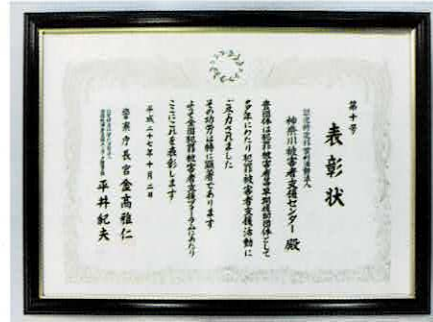 第十号
表彰状
認定特定非営利活動法人
神奈川被害者支援センター 殿
貴団体は犯罪被害者等早期援助団体として
多年にわたり犯罪被害者支援活動に
ご尽力されました
その功労は特に顕著であります
よって全国犯罪被害者支援フォーラムにあたり
ここにこれを表彰します
平成二十七年十月二日
警察庁長官 金高雅仁
平井紀夫